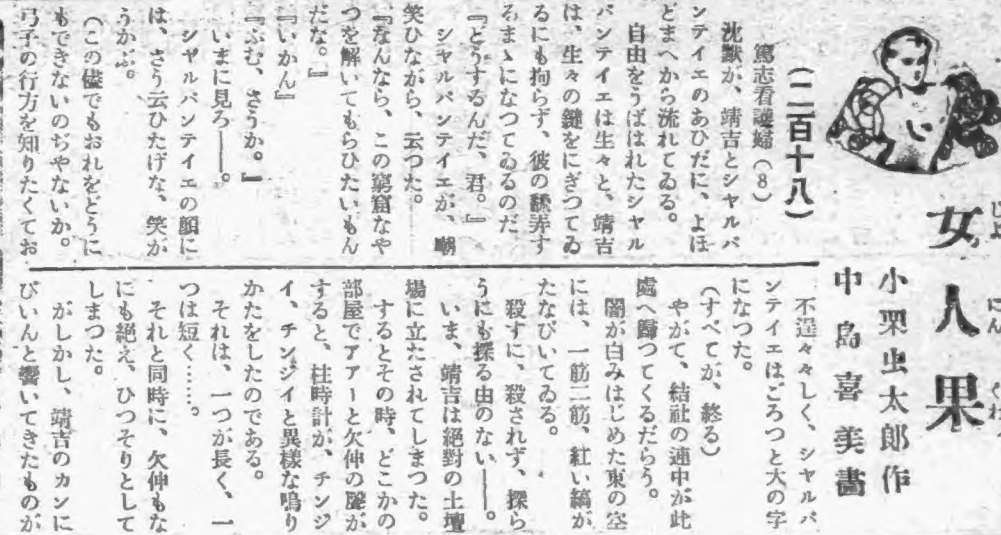 女人果
小栗虫太郎作
中島喜美畵
(二百十八)
篤志看護婦(8)
沈默が、靖吉とシャルパ
ンテイエのあひだに、よほ
どまへから流れてゐる。
自由をうばはれたシャル
パンテイエは生々と、靖吉
は、生々の鍵をにぎつてゐ
るにも拘らず、彼の飜弄す
るまゝになつてゐるのだ
『どうするんだ、君。』
シャルパンテイエが、嘲
笑ひながら、云つた。
『なんなら、この窮窟なや
つを解いてもらひたいもん
だな。』
『いかん』
『ふむ、さうか。』
いまに見ろ――。
シャルパンテイエの顔に
は、さう云ひたげな、笑が
うかぶ。
(この儘でもおれをどうに
もできないのぢやないか。
弓子の行方を知りたくてお
不逞々々しく、シャルパ
ンテイエはごろつと大の字
になつた。
(すべてが、終る)
やがて、結社の連中が此
處へ歸つてくるだらう。
闇が白みはじめた東の空
には、一筋二筋、紅い縞が
たなびいてゐる。
殺すに、殺されず、探ら
うにも探る由のない――。
いま、靖吉は絕對の土壇
場に立たされてしまつた。
するとその時、どこかの
部屋でアアーと欠伸の聲が
すると、柱時計が、チンジ
イ、チンジイと異樣な鳴り
かたをしたのである。
それは、一つが長く、一
つは短く……。
それと同時に、欠伸もな
にも絕え、ひつそりとして
しまつた。
がしかし、靖吉のカンに
びいんと響いてきたものが